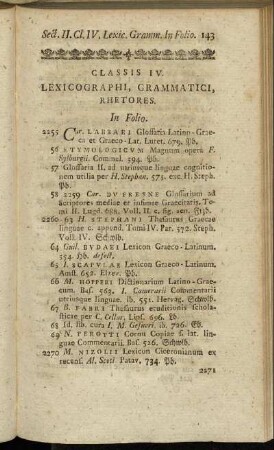 Sect. II. Cl. IV. Lexic. Gramm. In Folio. 143
CLASSIS IV.
LEXICOGRAPHI, GRAMMATICI,
RHETORES.
In Folio.
2255 Car. LABBAEI Glossaria Latino-Grae-
ca et Graeco-Lat. Luret. 679. Pb.
56 ETYMOLOGICVM Magnum opera F.
Sylburgii. Commel. 594. Pb.
57 Glossaria II. ad utriusque linguae cognitio-
nem utilia per H. Stephan. 573. exc. H. Steph.
Pb.
58 2259 Car. DU FRESNE Glossarium ad
Scriptores mediae et infimae Graecitatis, Tomi
II. Lugd. 688. Voll. II. c. fig.
2260 63 H. STEPHANI Thesaurus Graecae
linguae c. append. Tomi IV. Par. 572. Steph.
Voll. IV. Schwlb.
64 Guil. BUDAEI Lexicon Graeco-Latinum,
554. Hb. defect.
65 I. SCAPULAE Lexicon Graeco-Latinum,
Amst. 652. Elzev. Pb.
66 M. HOPPERI Dictionarium Latino-Grae-
cum. Bas. 563. I. Camerarii Commentarii
utriusque linguae. ib. 551. Hervag. Schwlb.
67 B. FABRI Thesaurus eruditionis schola-
sticae per C. Cellar. Lips. 696. Lb.
68 Id. lib. cura I. M. Gesneri. ib. 726. Eb.
69 N. PEROTTI Cornu Copiae s. lat. lin-
guae Commentarii. Bas. 526. Schwlb.
2270 M. NIZOLII Lexicon Ciceronianum ex
recens. Al. Scoti Patav. 734. Pb.
2271